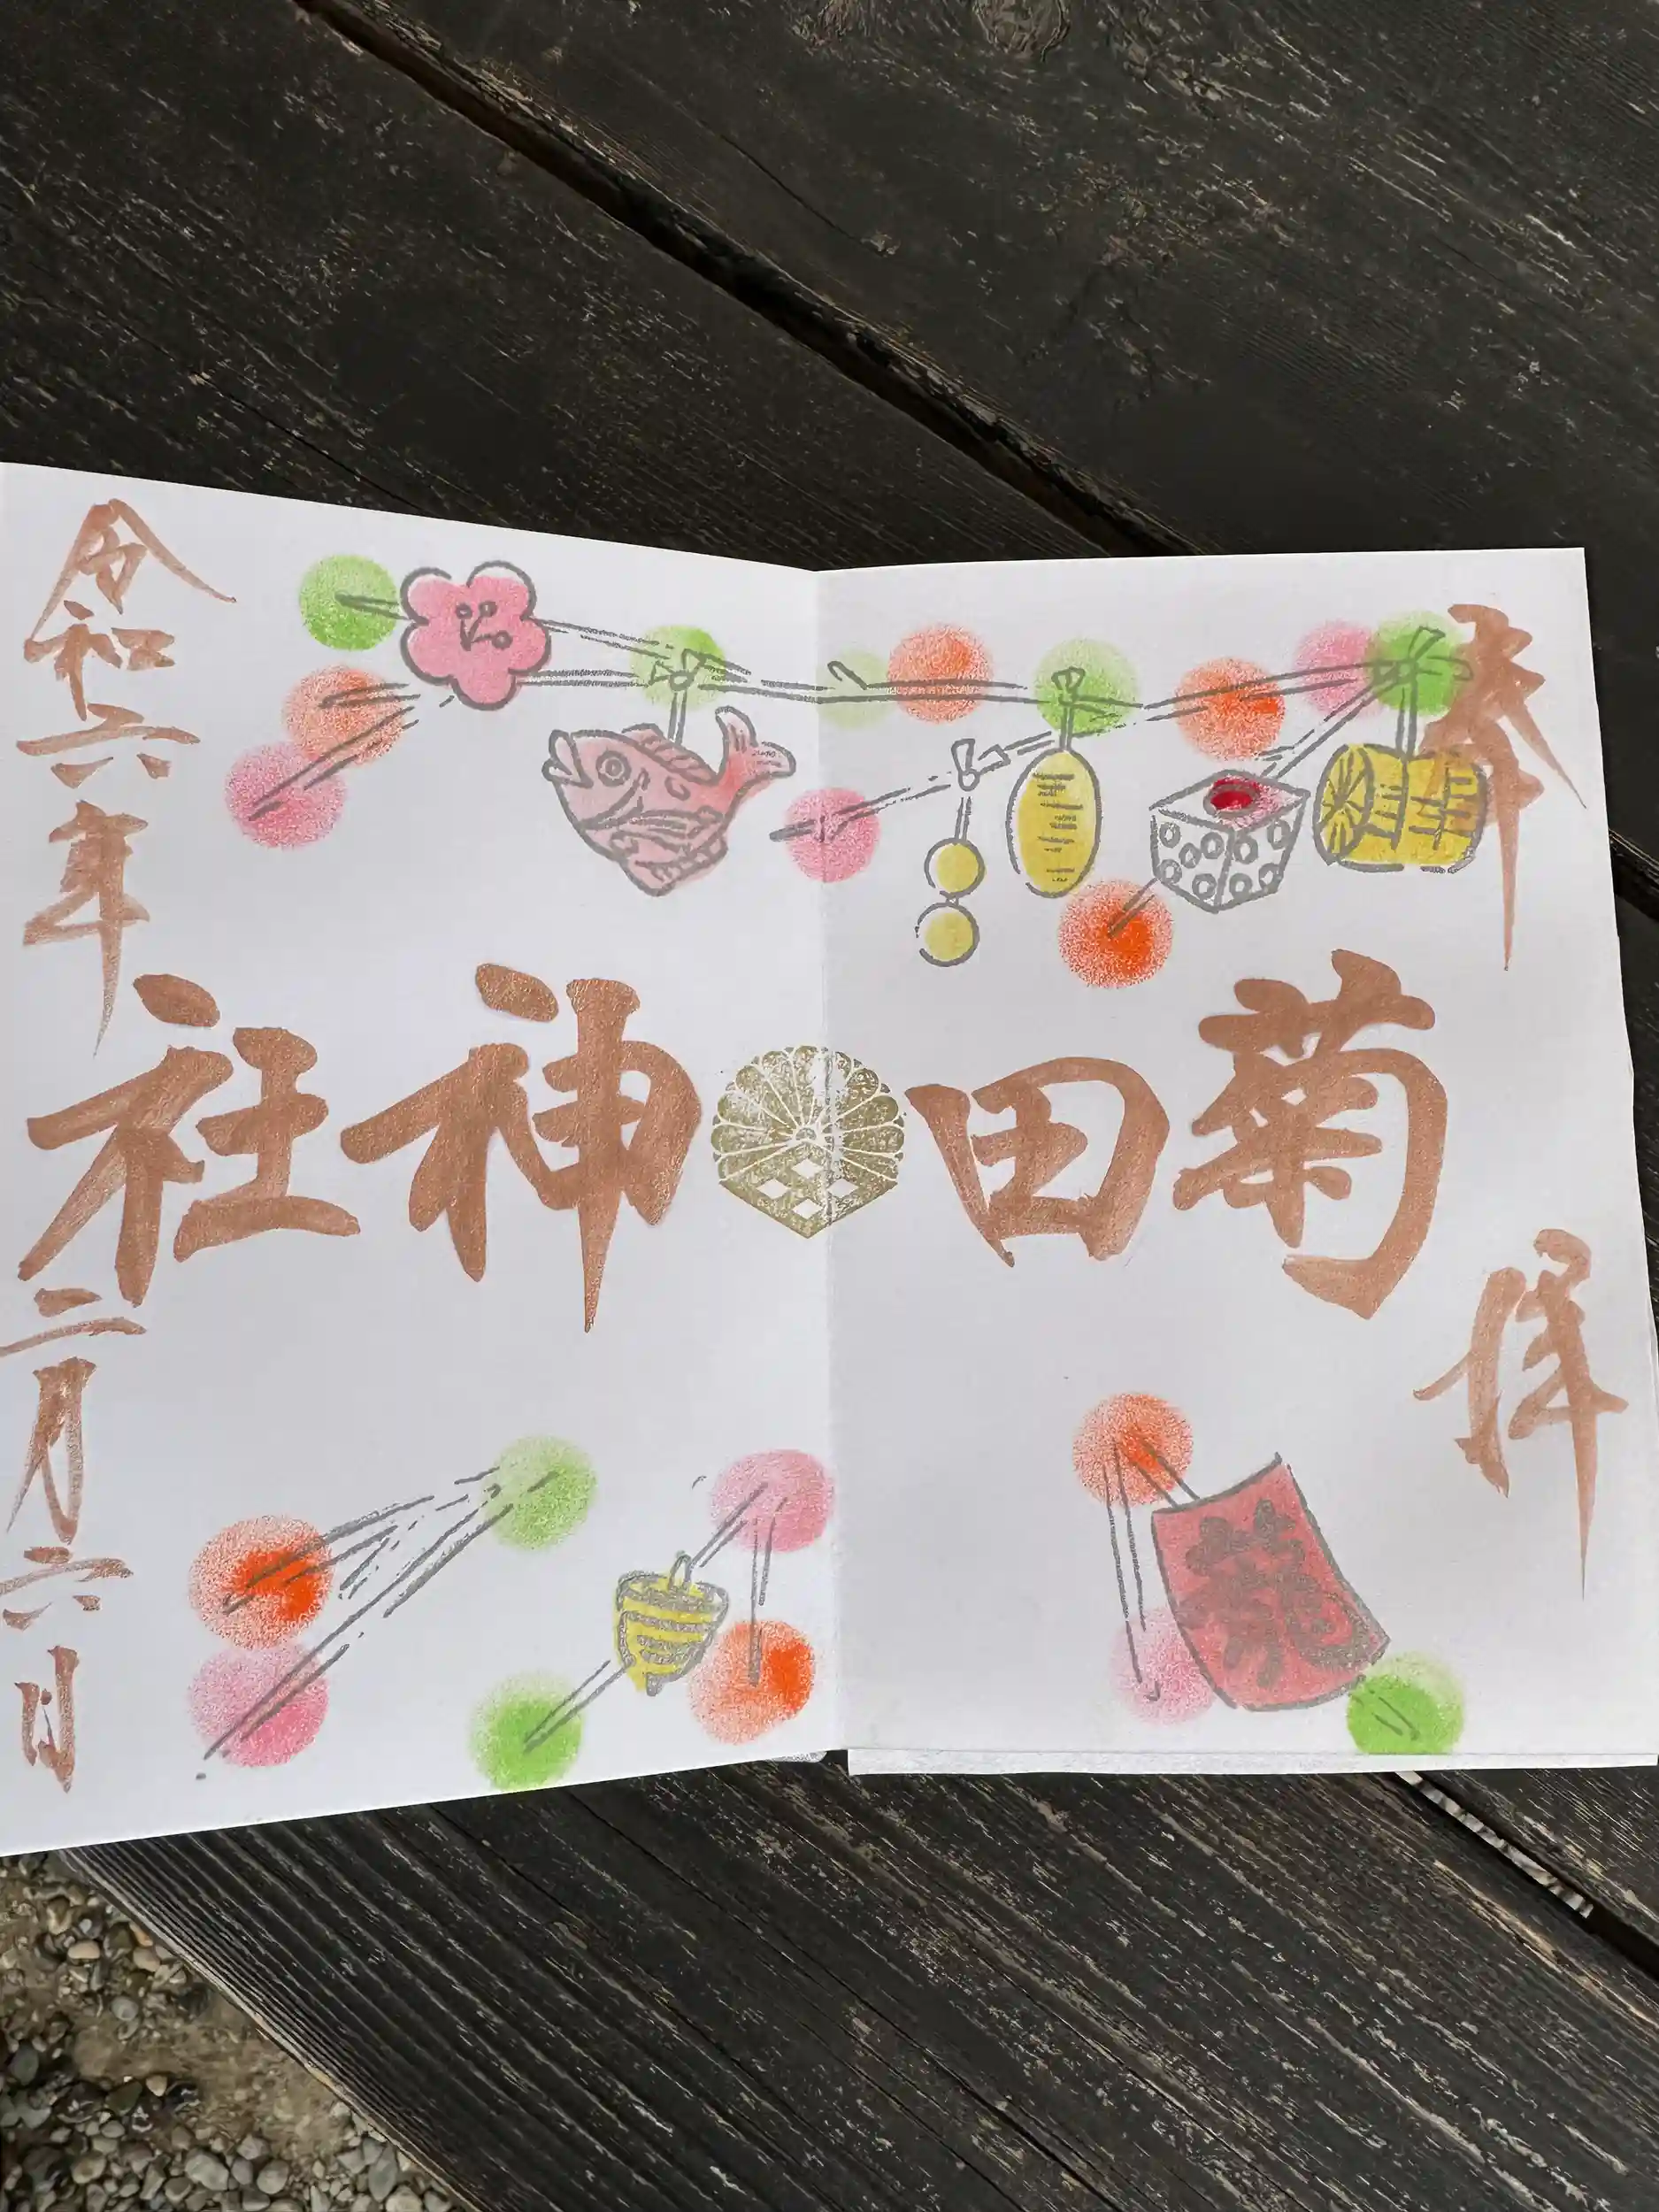 奉拝
菊田神社
龍
令和六年二月六日